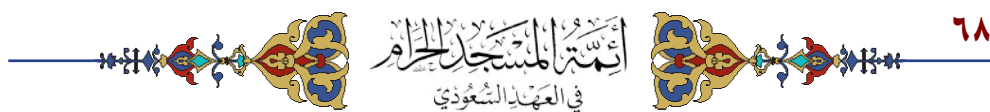 ٦٨
أئمة المسجد الحرام
في العهد السعودي